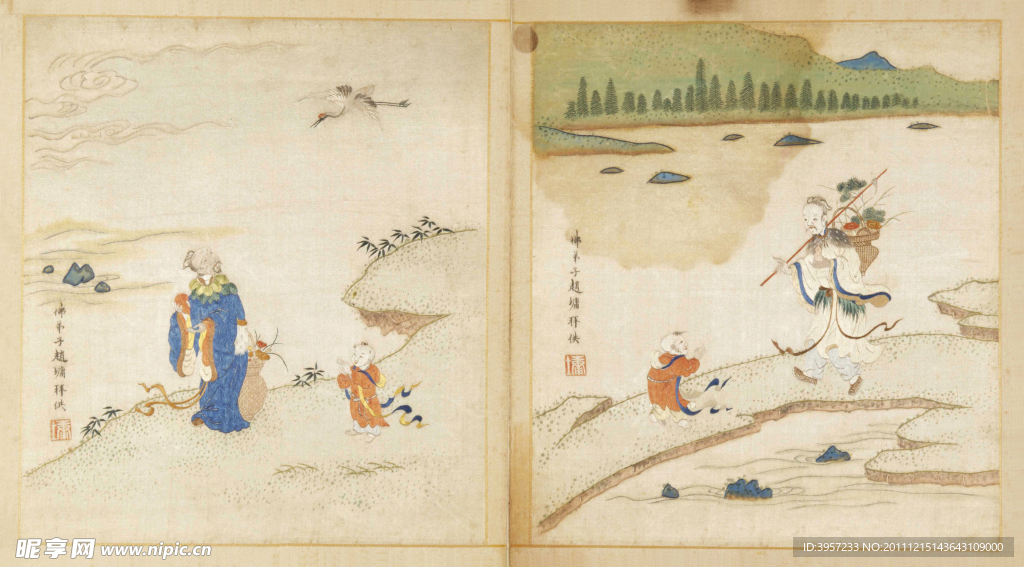 佛弟子趙墉拜供
佛弟子趙墉拜供
昵享网 www.nipic.cn
ID:3957233 NO:20111215143643109000